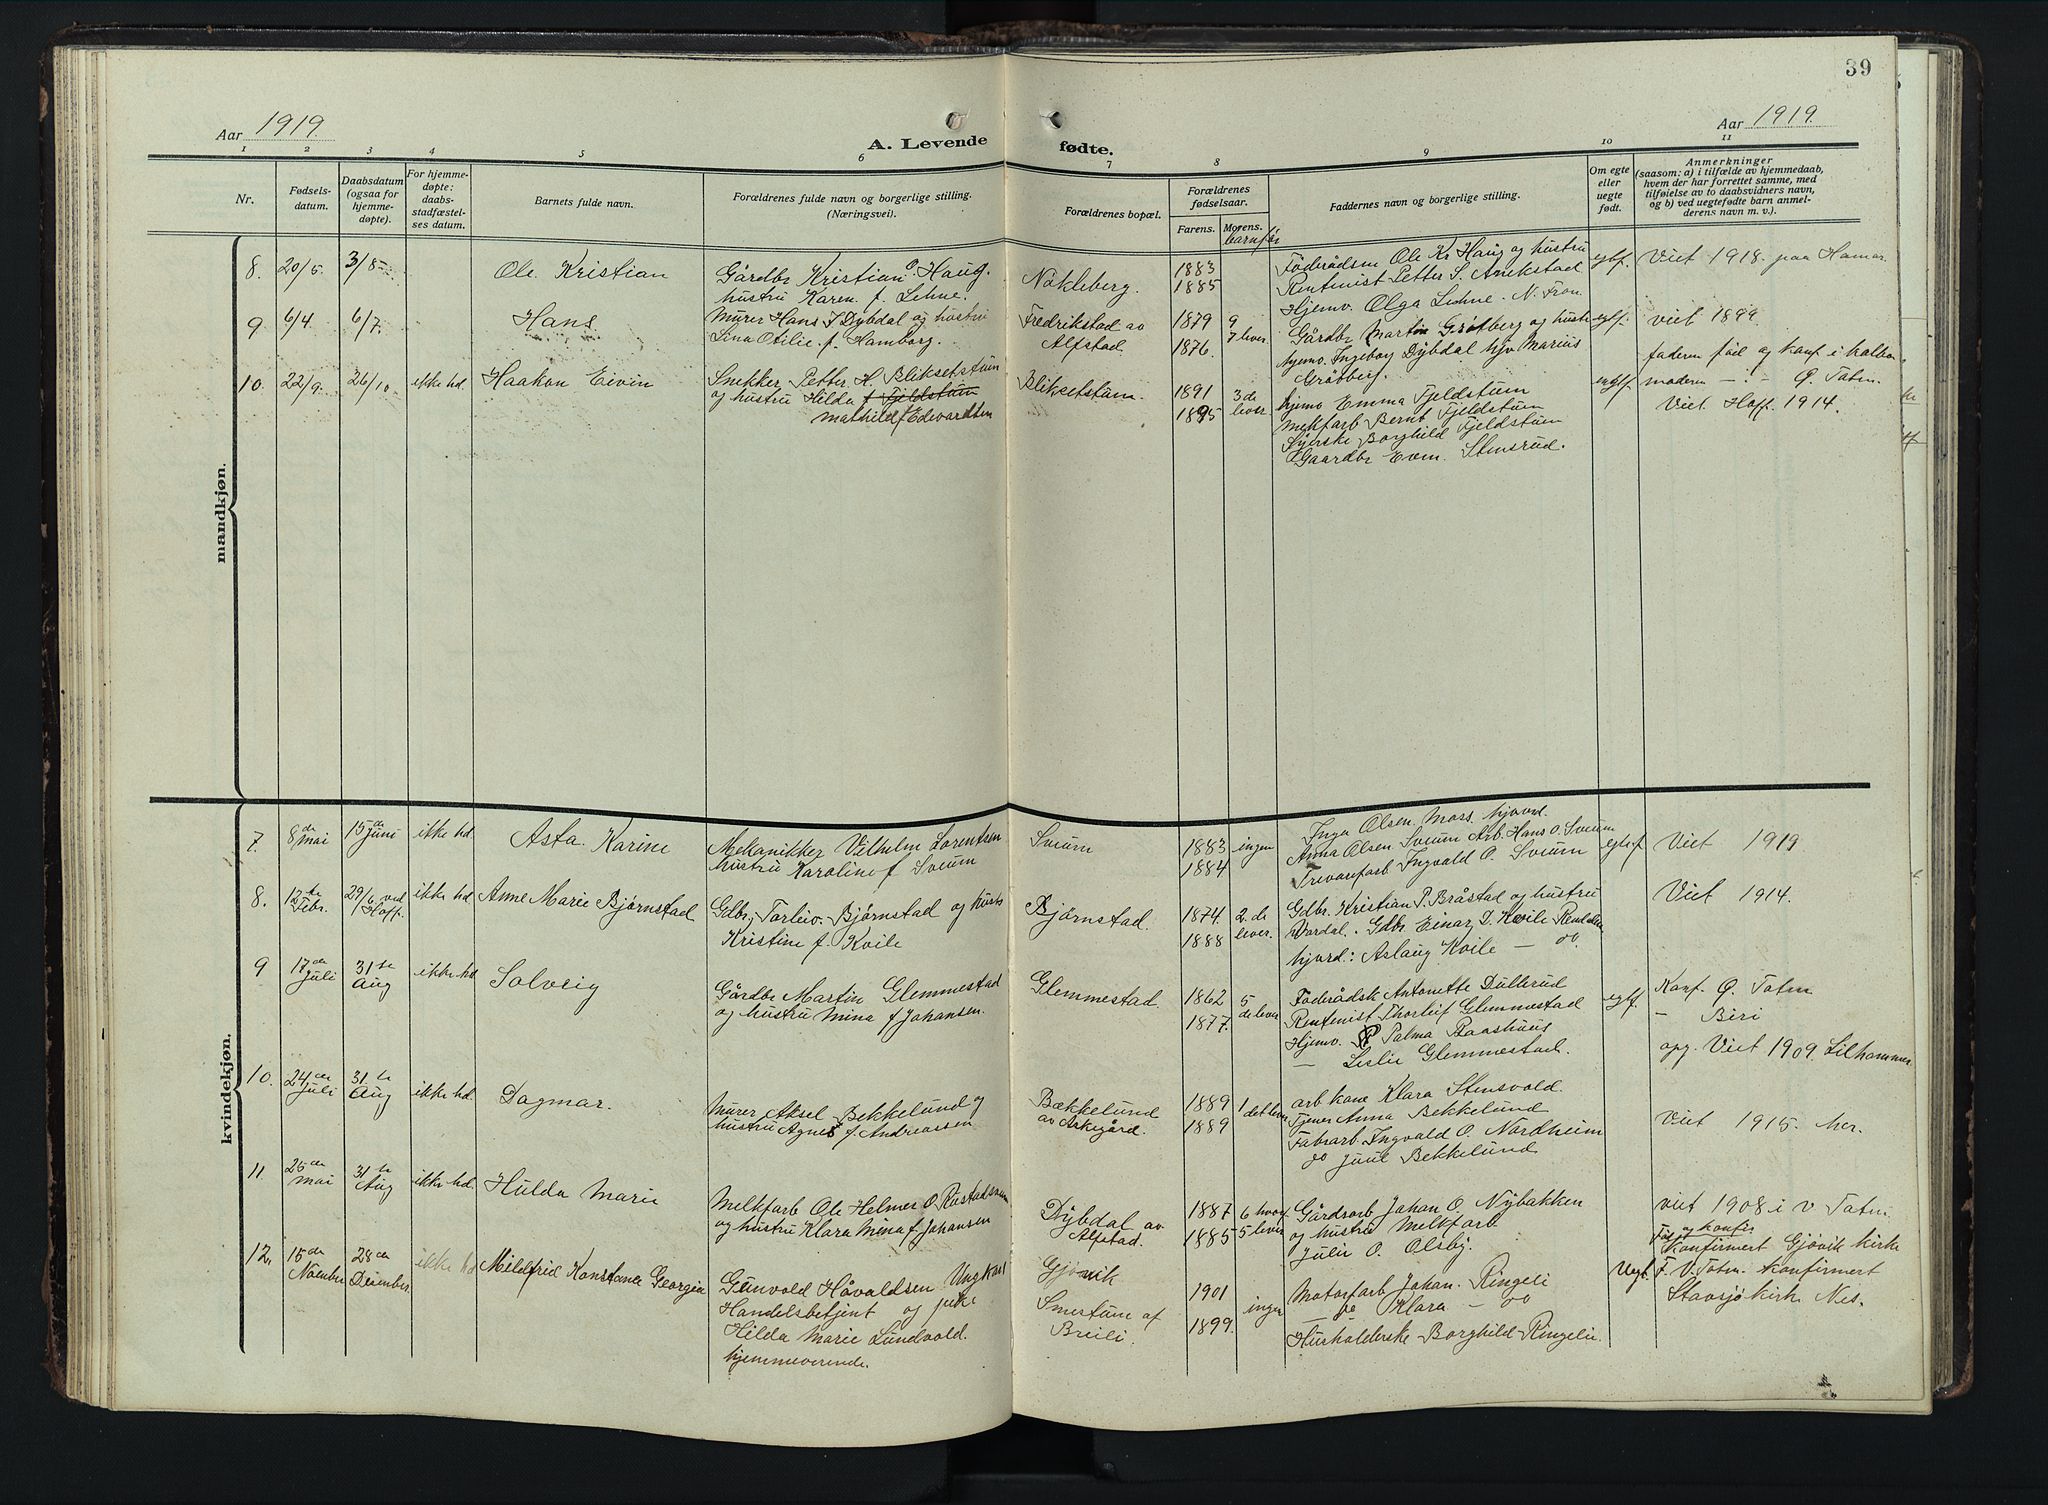 39
Aar 1919.
A. Levende fødte.
Aar 1919.
1 2 3 4 5 6 7 8 9 10 11
Nr.
Fødsels-
datum.
Daabsdatum
(ogsaa for
hjemme-
døpte).
For hjemme-
døpte:
daabs-
stadfæstel-
ses datum.
Barnets fulde navn.
Forældrenes fulde navn og borgerlige stilling.
(Næringsvei).
Forældrenes bopæl.
Forældrenes
fødselsaar.
Farens. Morens.
Faddernes navn og borgerlige stilling.
Om egte
eller
uegte
født.
Anmerkninger
(saasom: a) i tilfælde av hjemmedaab,
hvem der har forrettet samme, med
tilføielse av to daabsvidners navn,
og b) ved uegtefødte barn anmel-
derens navn m. v.).
mandkjøn.
8. 20/5. 3/8 Ole Kristian
Gårdbr Kristian O. Haug.
hustru Karen f. Lehne.
Nøkleberg.
1883
1885
Føderådsm Ole Kr Haug og hustru
Rentenist Petter S. Amkstad
Hjemv. Olga Lehne. N. Fron
egtf. Viet 1918. paa Hamar.
9 6/4 6/7. Hans
Murer Hans J Dybdal og hustru
Lina Otilie f. Hamborg.
Fredrikstad av
Alfstad.
1879 9
1876. 7 lever.
Gårdbr Martin Grøtberg og hustr
hjemv. Ingeborg Dybdal hjv Marius
Grøtberg.
egtf. viet 1899
faderen fød og konf i kolbu
moderen - : - Ø. Totn.
10. 22/9. 26/10 ikke hd. Haakon Eivin
Snekker Petter H. Bliksetstuen
og hustru Hilda f Fjeldstuen
Mathild f Edevardsen
Bliksetstuen.
1891 3 de
1895 lever.
hjemv Emma Fjeldstuen
Mekfarb Bernt Fjeldstuen
Syerske Borghild Fjeldstuen
Gaardbr Even Stensrud.
egtf
Viet. Hoff. 1914.
kvindekjøn.
7. 8de mai 15de juni ikke hd. Asta Karine
Mekanikker Vilhelm Lorentsen
hustru Karoline f Sveum
Sveum
1883 ingen
1884
Inga Olsen Moss. hjvrd.
Anna Olsen Sveum Arb. Hans O. Sveum
Trevarefarb Ingvald O. Sveum
egtef Viet 1919
8. 12te Febr. 29/6 ved Hoff. ikke hd Anne Marie Bjørnstad
Gdbr. Torleiv Bjørnstad og hustr
Kristine f. Kvile
Bjørnstad.
1874 2. de
1888 lever.
Gdbr. Kristian P. Bråstad og hustru
Vardal. Gdbr Einar D. Kvile Rendalen
hjvrd.: Aslaug Kvile — do.
Viet 1914.
9 17de juli 31te Aug ikke hd Solveig
Gårdbr Martin Glemmestad
og hustru Mina f Johansen.
Glemmestad.
1862 5
1877. de lever
Føderådsk Antonette Dullerud
Rentenist Thorleif Glemmestad
Hjemv. Palma Raashuus
— Leslie Glemmestad.
egtf. Konf. Ø. Totn
— Biri
opg. Viet 1909. Lilhammer.
10. 24de juli 31te Aug ikke hd. Dagmar.
Murer Aksel Bekkelund og
hustru Agnes f. Andreassen
Bækkelund
av Askegård.
1889 1
1889 det lever
arb kone Klara Stensvold.
Tjener Anna Bekkelund
Fabrarb Ingvald O. Nordheim
do Juul Bekkelund
Viet 1915. her.
11. 25de mai 31te Aug ikke hd. Hulda Marie
Melkfarb Ole Helmer O. Rustadstuen
og hustru Klara Mina f Johansen
Dybdal av
Alfstad.
1887 6 hvoraf
1885 5 lever
Gårdsarb Johan O. Nybakken
og hustru Melkfarb
Julie O. Olsby.
viet 1908 i v Totn.
12. 15de Noember 28de Desember ikke hd Mildfrid Konstance Georgia
Gunvald Håvaldsen Ungkarl
Handelsbetjent og pike
Hilda Marie Lundvold.
hjemmeverende.
Gjøvik
Smestuen af
Breili.
1901 ingen
1899.
Motorfarb Johan. Ringeli
— Klara — do
Husholderske Borghild Ringeli.
Uegt. Fød og konfir
Konfirmert Gjøvik kirke
F. V. Totn. Konfirmert
Stavsjø kirke Nes.